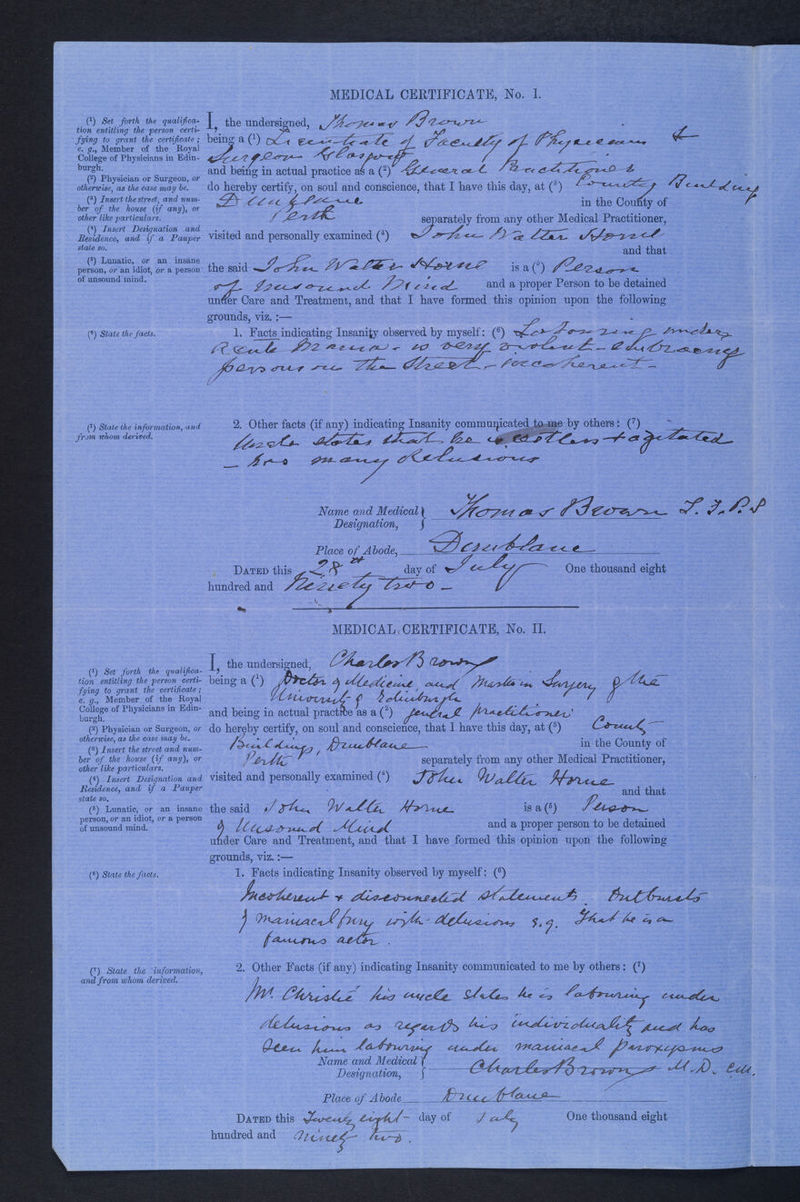 MEDICAL CERTIFICATE, No. I.
(1) Set forth the qualifica-
tion entitling the person certi-
fying to grant the certificate;
e. g., Member of the Royal
College of Physicians in Edin-
burgh.
(2) Physician or Surgeon, or
otherwise, as the case may be.
(3) Insert the street, and num-
ber of the house (if any), or
other like particulars.
(4) Insert Designation and
Residence, and if a Pauper
state so.
(5) Lunatic, or an insane
person, or an idiot, or a person
of unsound mind.
I, the undersigned, Thomas Brown
being a (1) Licentiate of Faculty of Physicians &
Surgeons Glasgow
and being in actual practice as a (2) General Practitioner
do hereby certify, on soul and conscience, that I have this day, at (3) County Building
Dunblane in the County of
Perth separately from any other Medical Practitioner,
visited and personally examined (4) John Walter Horne
and that
the said John Walter Horne is a (5) Person
of Unsound Mind and a proper Person to be detained
under Care and Treatment, and that I have formed this opinion upon the following
grounds, viz.:—
(6) State the facts.
1. Facts indicating Insanity observed by myself: (6) Labouring under
Acute Mania - is very violent - embracing
persons on the Street - incoherent -
(7) State the information, and
from whom derived.
2. Other facts (if any) indicating Insanity communicated to me by others: (7)
Uncle states that he is restless & agitated
- has many delusions
Name and Medical Designation, Thomas Brown L.F.P.S
Place of Abode, Dunblane
DATED this 28th day of July One thousand eight
hundred and Ninety two -
MEDICAL CERTIFICATE, No. II.
(1) Set forth the qualifica-
tion entitling the person certi-
fying to grant the certificate;
e. g., Member of the Royal
College of Physicians in Edin-
burgh.
(2) Physician or Surgeon, or
otherwise, as the case may be.
(3) Insert the street and num-
ber of the house (if any), or
other like particulars.
(4) Insert Designation and
Residence, and if a Pauper
state so.
(5) Lunatic, or an insane
person, or an idiot, or a person
of unsound mind.
I, the undersigned, Charles Brown
being a (1) Doctor of Medicine and Master in Surgery of the
University of Edinburgh
and being in actual practice as a (2) general practitioner
do hereby certify, on soul and conscience, that I have this day, at (3) County
Buildings, Dunblane in the County of
Perth separately from any other Medical Practitioner,
visited and personally examined (4) John Walter Horne
and that
the said John Walter Horne is a (5) Person
of Unsound Mind and a proper person to be detained
under Care and Treatment, and that I have formed this opinion upon the following
grounds, viz.:—
(6) State the facts.
1. Facts indicating Insanity observed by myself: (6)
Incoherent & disconnected statements. Outbursts
of maniacal fury with delusions e.g. That he is a
famous actor.
(7) State the information,
and from whom derived.
2. Other Facts (if any) indicating Insanity communicated to me by others: (7)
Mr. Christie his uncle states he is labouring under
delusions as regards his individuality and has
seen him labouring under maniacal paroxysms
Name and Medical Designation, Charles Brown M.D. C.M.
Place of Abode Dunblane
DATED this Twenty eight day of July One thousand eight
hundred and ninety two.